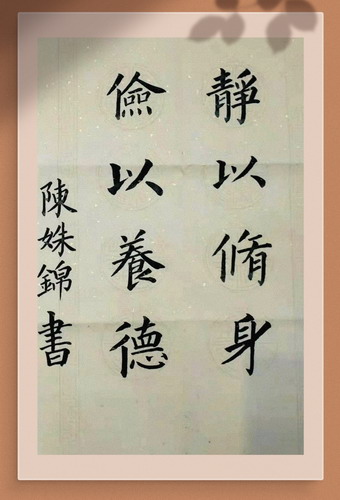 靜以脩身
儉以養德
陳姝錦書